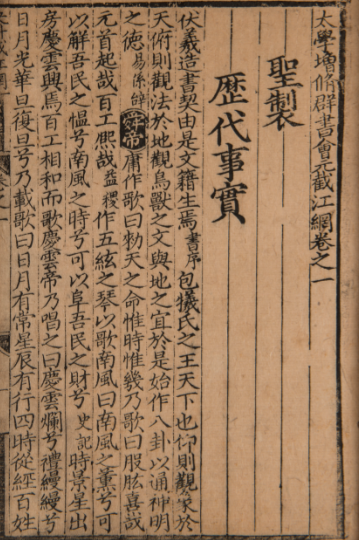 太學增修群書會元截江網卷之一
聖製
歷代事實
伏羲造書契由是文籍生焉書序包犧氏之王天下也仰則觀象於
天俯則觀法於地觀鳥獸之文與地之宜於是始作八卦以通神明
之德易係辭舜帝庸作歌曰勑天之命惟時惟幾乃歌曰股肱喜哉
元首起哉百工熙哉益稷作五絃之琴以歌南風曰南風之薰兮可
以解吾民之愠兮南風之時兮可以阜吾民之財兮史記時景星出
房慶雲興焉百工相和而歌慶雲帝乃唱之曰慶雲爛兮禮縵縵兮
日月光華旦復旦兮乃載歌曰日月有常星辰有行四時從經百姓